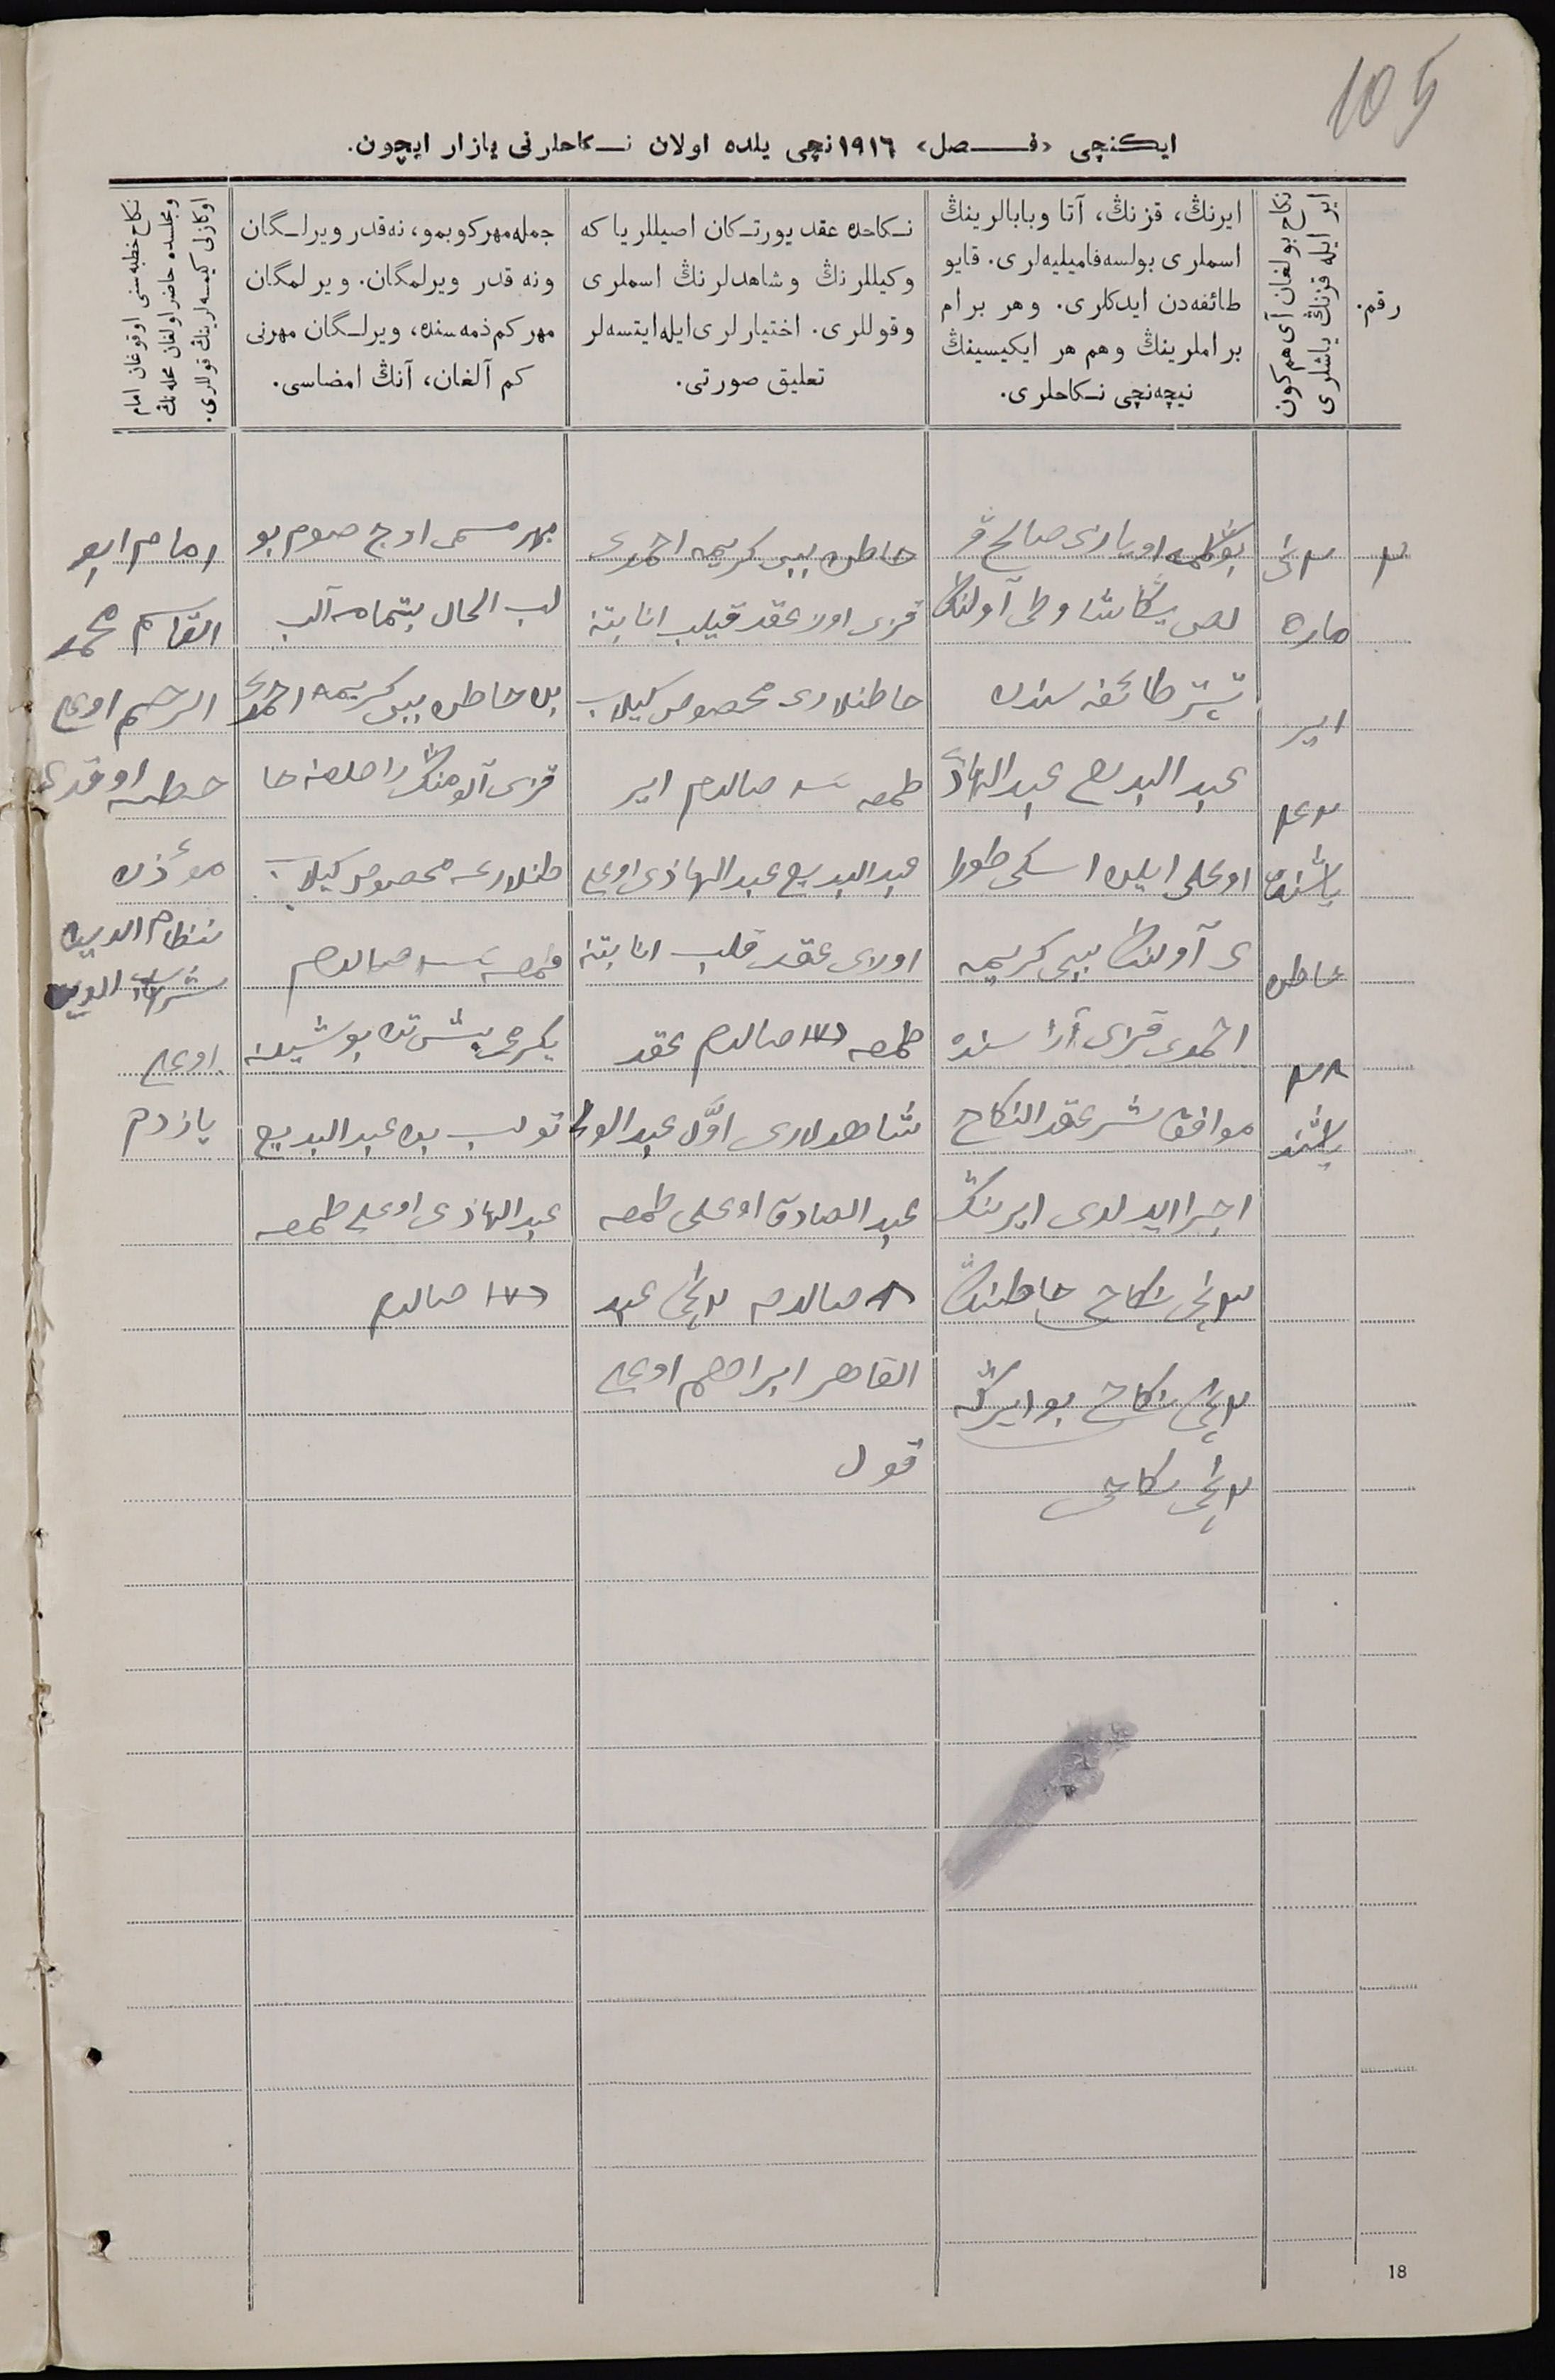 105
ایکنچی «فصل» ١٩١٦نچی یلده اولان نکاحلرنی یازار ایچون.
رقم.
نکاح بولغان آی هم کون
ایر ایله قزنڭ یاشلری
ایرنڭ، قزنڭ، آتا وبابالرینڭ
اسملری بولسه فامیلیه‌لری. قایو
طائفه‌دن ایدکلری. وهر برام
براملرینڭ وهم هر ایکیسینڭ
نیچه‌نچی نکاحلری.
نکاحده عقد یورتکان اصیللر یا که
وکیللرنڭ وشاهدلرنڭ اسملری
وقوللری. اختیارلری ایله ایتسه‌لر
تعلیق صورتی.
جمله مهر کوبمو، نه‌قدر ویرلگان
ونه قدر ویرلمگان. ویرلمگان
مهر کم ذمه‌سنده، ویرلگان مهرنی
کم آلغان، آنڭ امضاسی.
نکاح خطبه‌سنی اوقوغان امام
ومجلسده حاضر اولغان محله‌نڭ
اوکازلی کیمسه‌لرینڭ قوللری.
٣
٢ نچی
مارت
ایر
٢٤
یاشنده
خاطن
٢٨
یاشنده
اویازی صالح
آولنڭ
تپتر طائفه سندن
عبد البدیع عبد الهادی
اوغلی ایلن اسکی
ی آولنڭ بیبی کریمه
احمدی قزی آراسنده
موافق شرع عقد النکاح
اجرا ایدلدی ایرنڭ
٣نچی نکاح خاطننڭ
٢نچی نکاح بو ایرگه
٢نچی نکاحی
خاطن بیبی کریمه احمدی
قزی اوزی عقد قیلب اثابتنه
خاطنلاری مخصوص کیلاب
طمغه سه صالدم ایر
عبد البدیع عبد الهادی اوغلی
اوزی عقد قلب اثابتنه
طمغه صالدم عقد
شاهدلاری اوّل عبد الولی
عبد الصادق اوغلی طمغه
صالدم ٢نچی عبد
القاهر ابراهیم اوغلی
قول
مهر مسمی اوچ صوم بو
لب الحال بتمامه آلب
من خاطن بیبی کریمه احمدی
قزی آلومنڭ راصلغنه خا
طنلارغه مخصوص کیلاب
طمغه سه صالدم
یکرمی بیش تن بوشینه
تولب من عبد البدیع
عبد الهادی اوغلی طمغه
صالدم
امام ابو
القاسم محمد
الرحیم اوغلی
خطبه اوقدی
مؤذن
نظام الدین
شرف الدین
اوغلی
یازدم
18